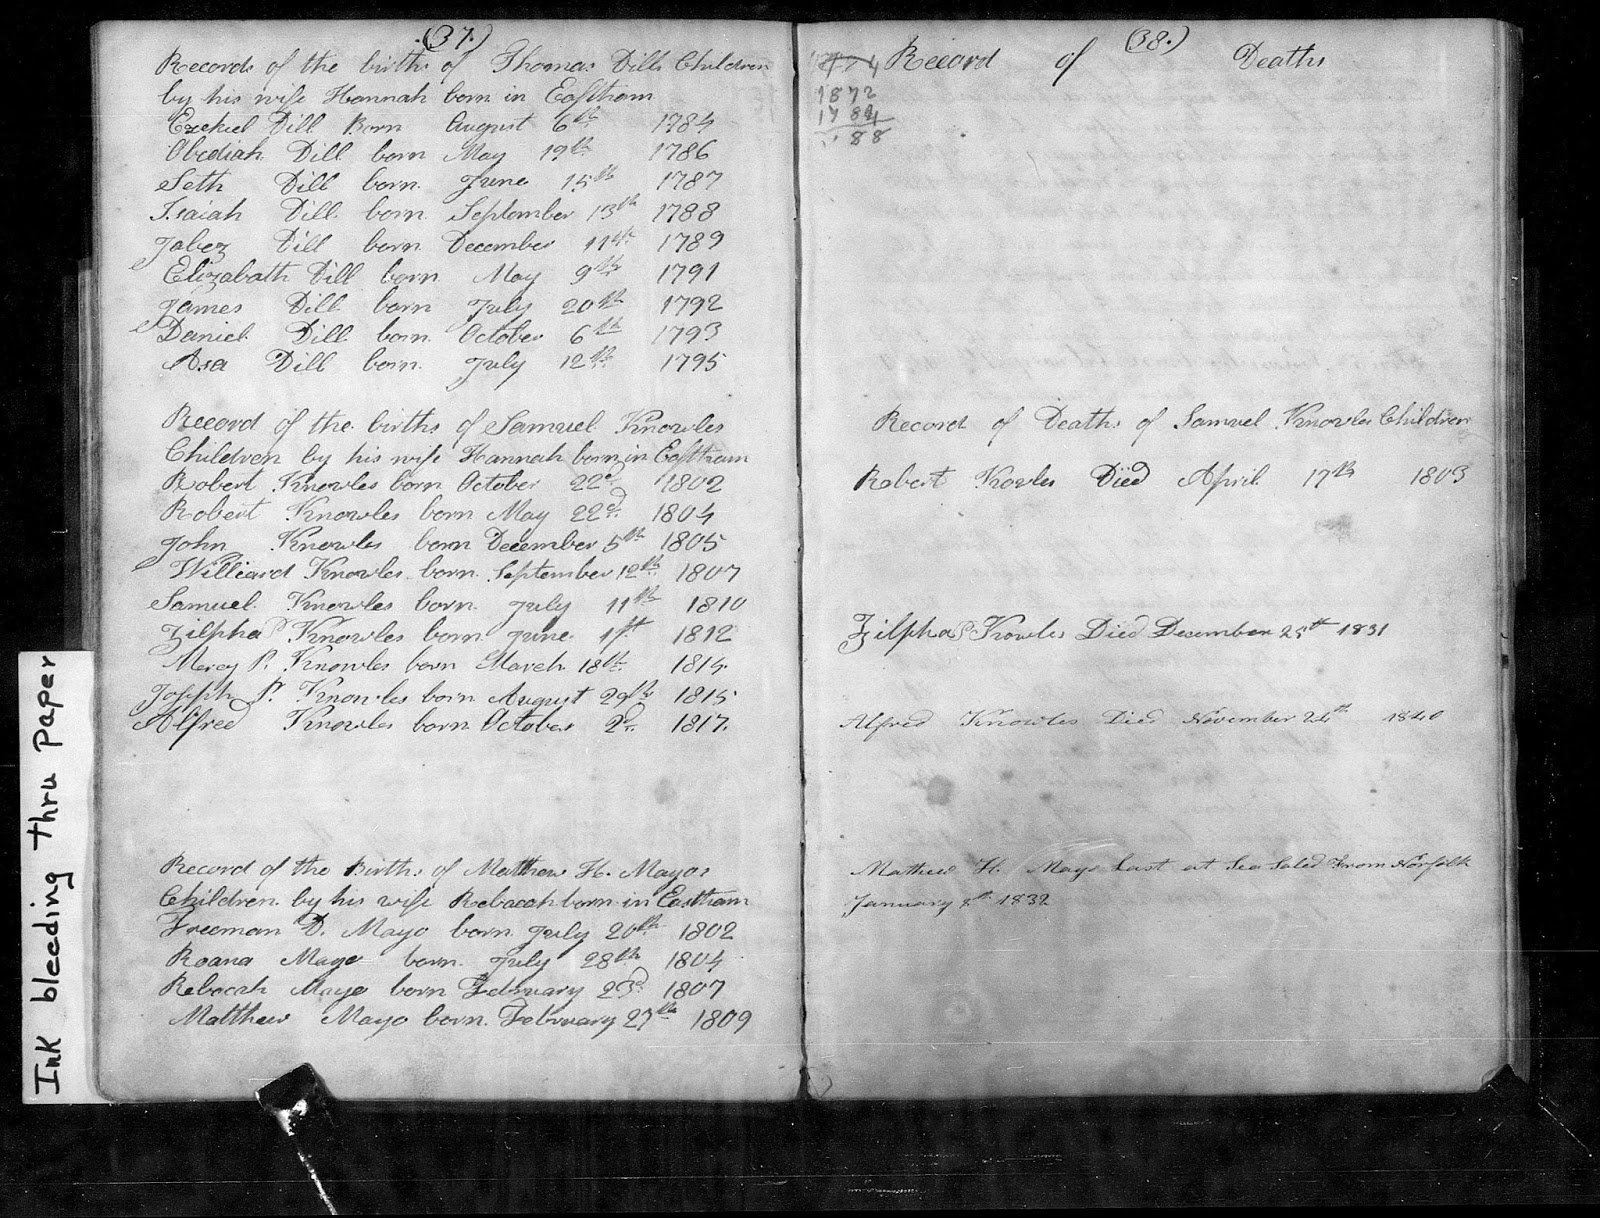 (37.)
Records of the births of Thomas Dills Children
by his wife Hannah born in Eastham
Ezekiel Dill Born August 6th 1784
Obediah Dill born May 19th 1786
Seth Dill born June 15th 1787
Isaiah Dill born September 13th 1788
Jabez Dill born December 11th 1789
Elizabath Dill born May 9th 1791
James Dill born July 20th 1792
Daniel Dill born October 6th 1793
Asa Dill born July 12th 1795
Record of the births of Samuel Knowles
Children by his wife Hannah born in Eastham
Robert Knowles born October 22d 1802
Robert Knowles born May 22d 1804
John Knowles born December 5th 1805
Williard Knowles born September 12th 1807
Samuel Knowles born July 11th 1810
Zilpha P Knowles born June 1st 1812
Mercy P. Knowles born March 18th 1814
Joseph P. Knowles born August 29th 1815
Alfred Knowles born October 2d 1817
Record of the Births of Matthew H. Mayos
Children by his wife Rebacah born in Eastham
Freeman D. Mayo born July 20th 1802
Roana Mayo born July 28th 1804
Rebacah Mayo born February 23d 1807
Matthew Mayo born February 27th 1809
(38.)
Record of Deaths
1872
1784
88
Record of Deaths of Samuel Knowles Children
Robert Knowles Died April 17th 1803
Zilpha P Knowles Died December 25th 1831
Alfred Knowles Died November 24th 1840
Mathew H. Mayo Last at Sea Saled From Norfolk
January 8th 1832
Ink bleeding thru Paper